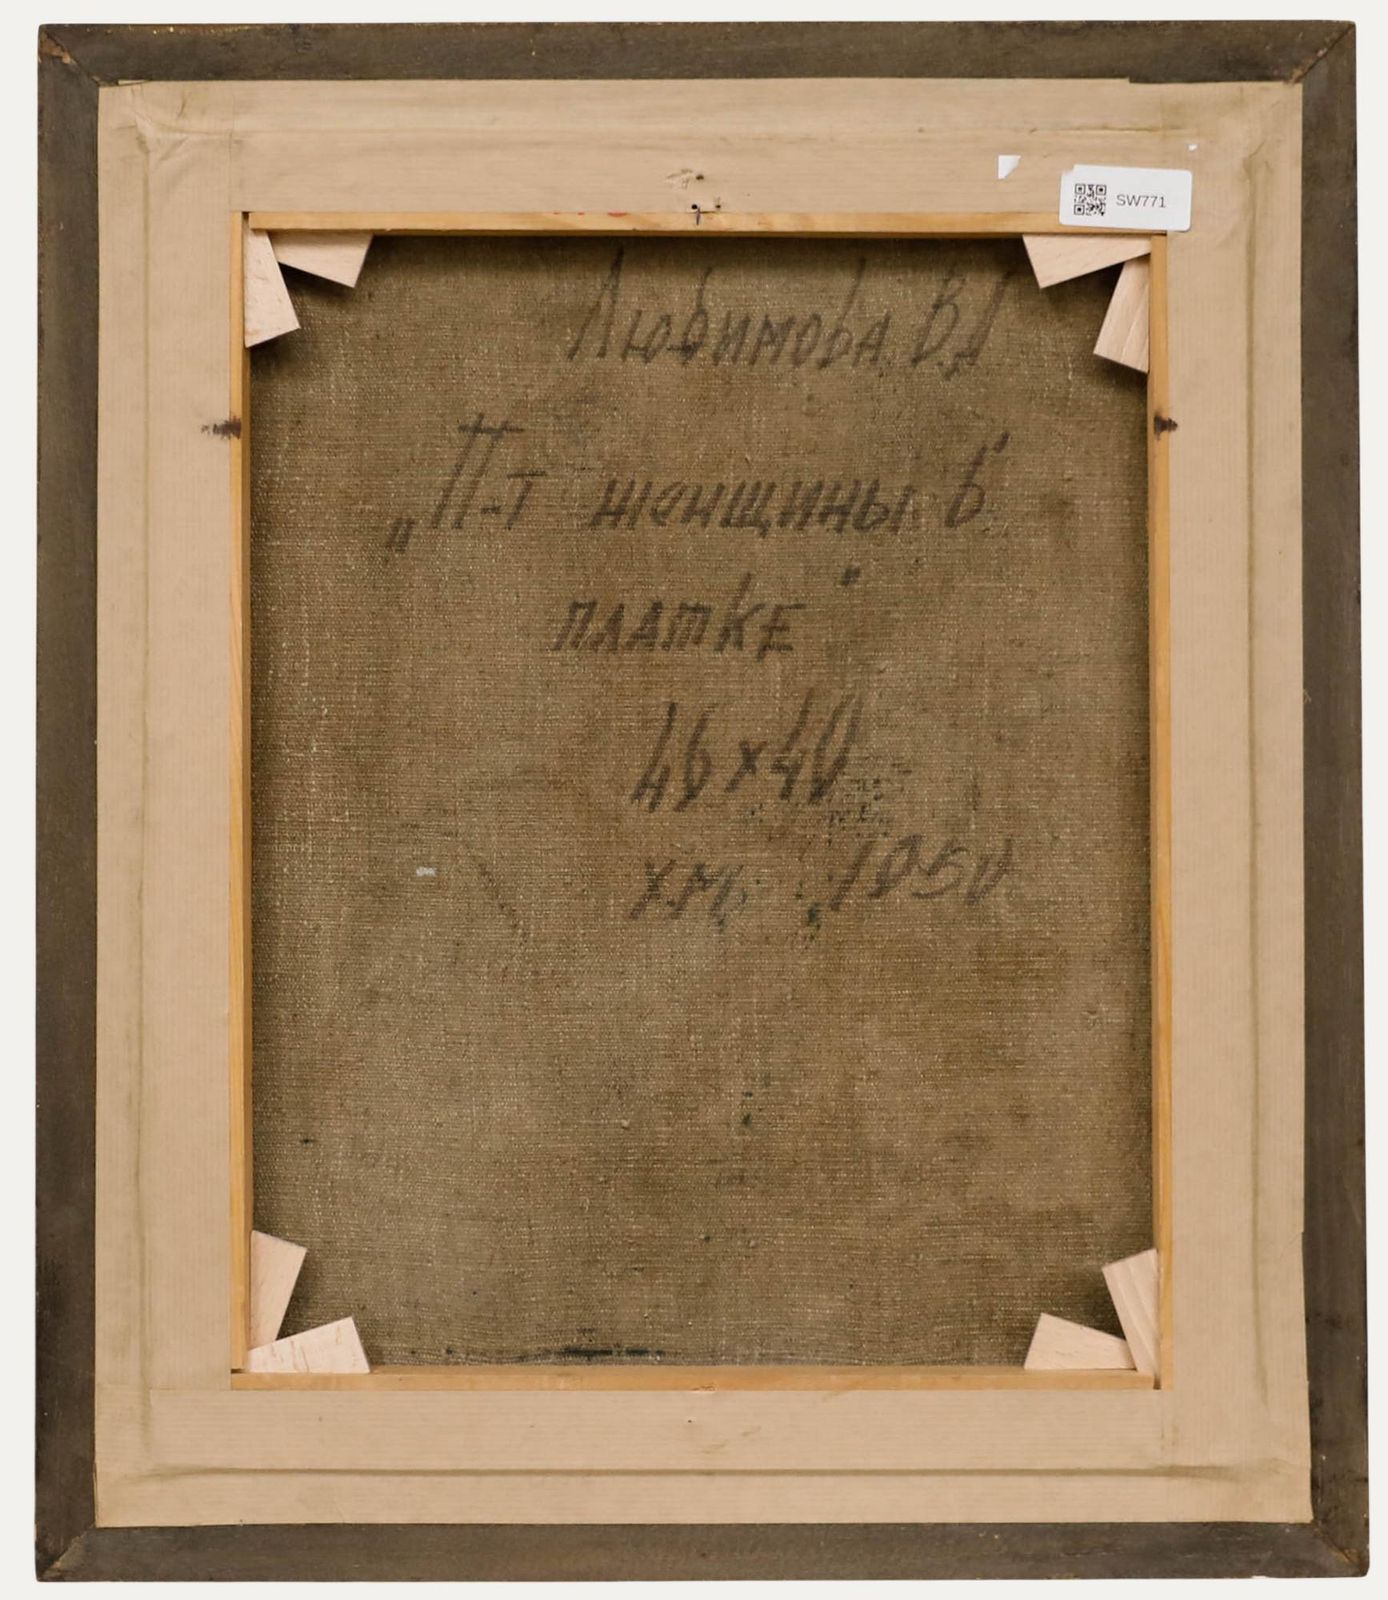 SW771
Любимова В.Д
„П-т женщины в
платке"
46х40
х.м. 1950